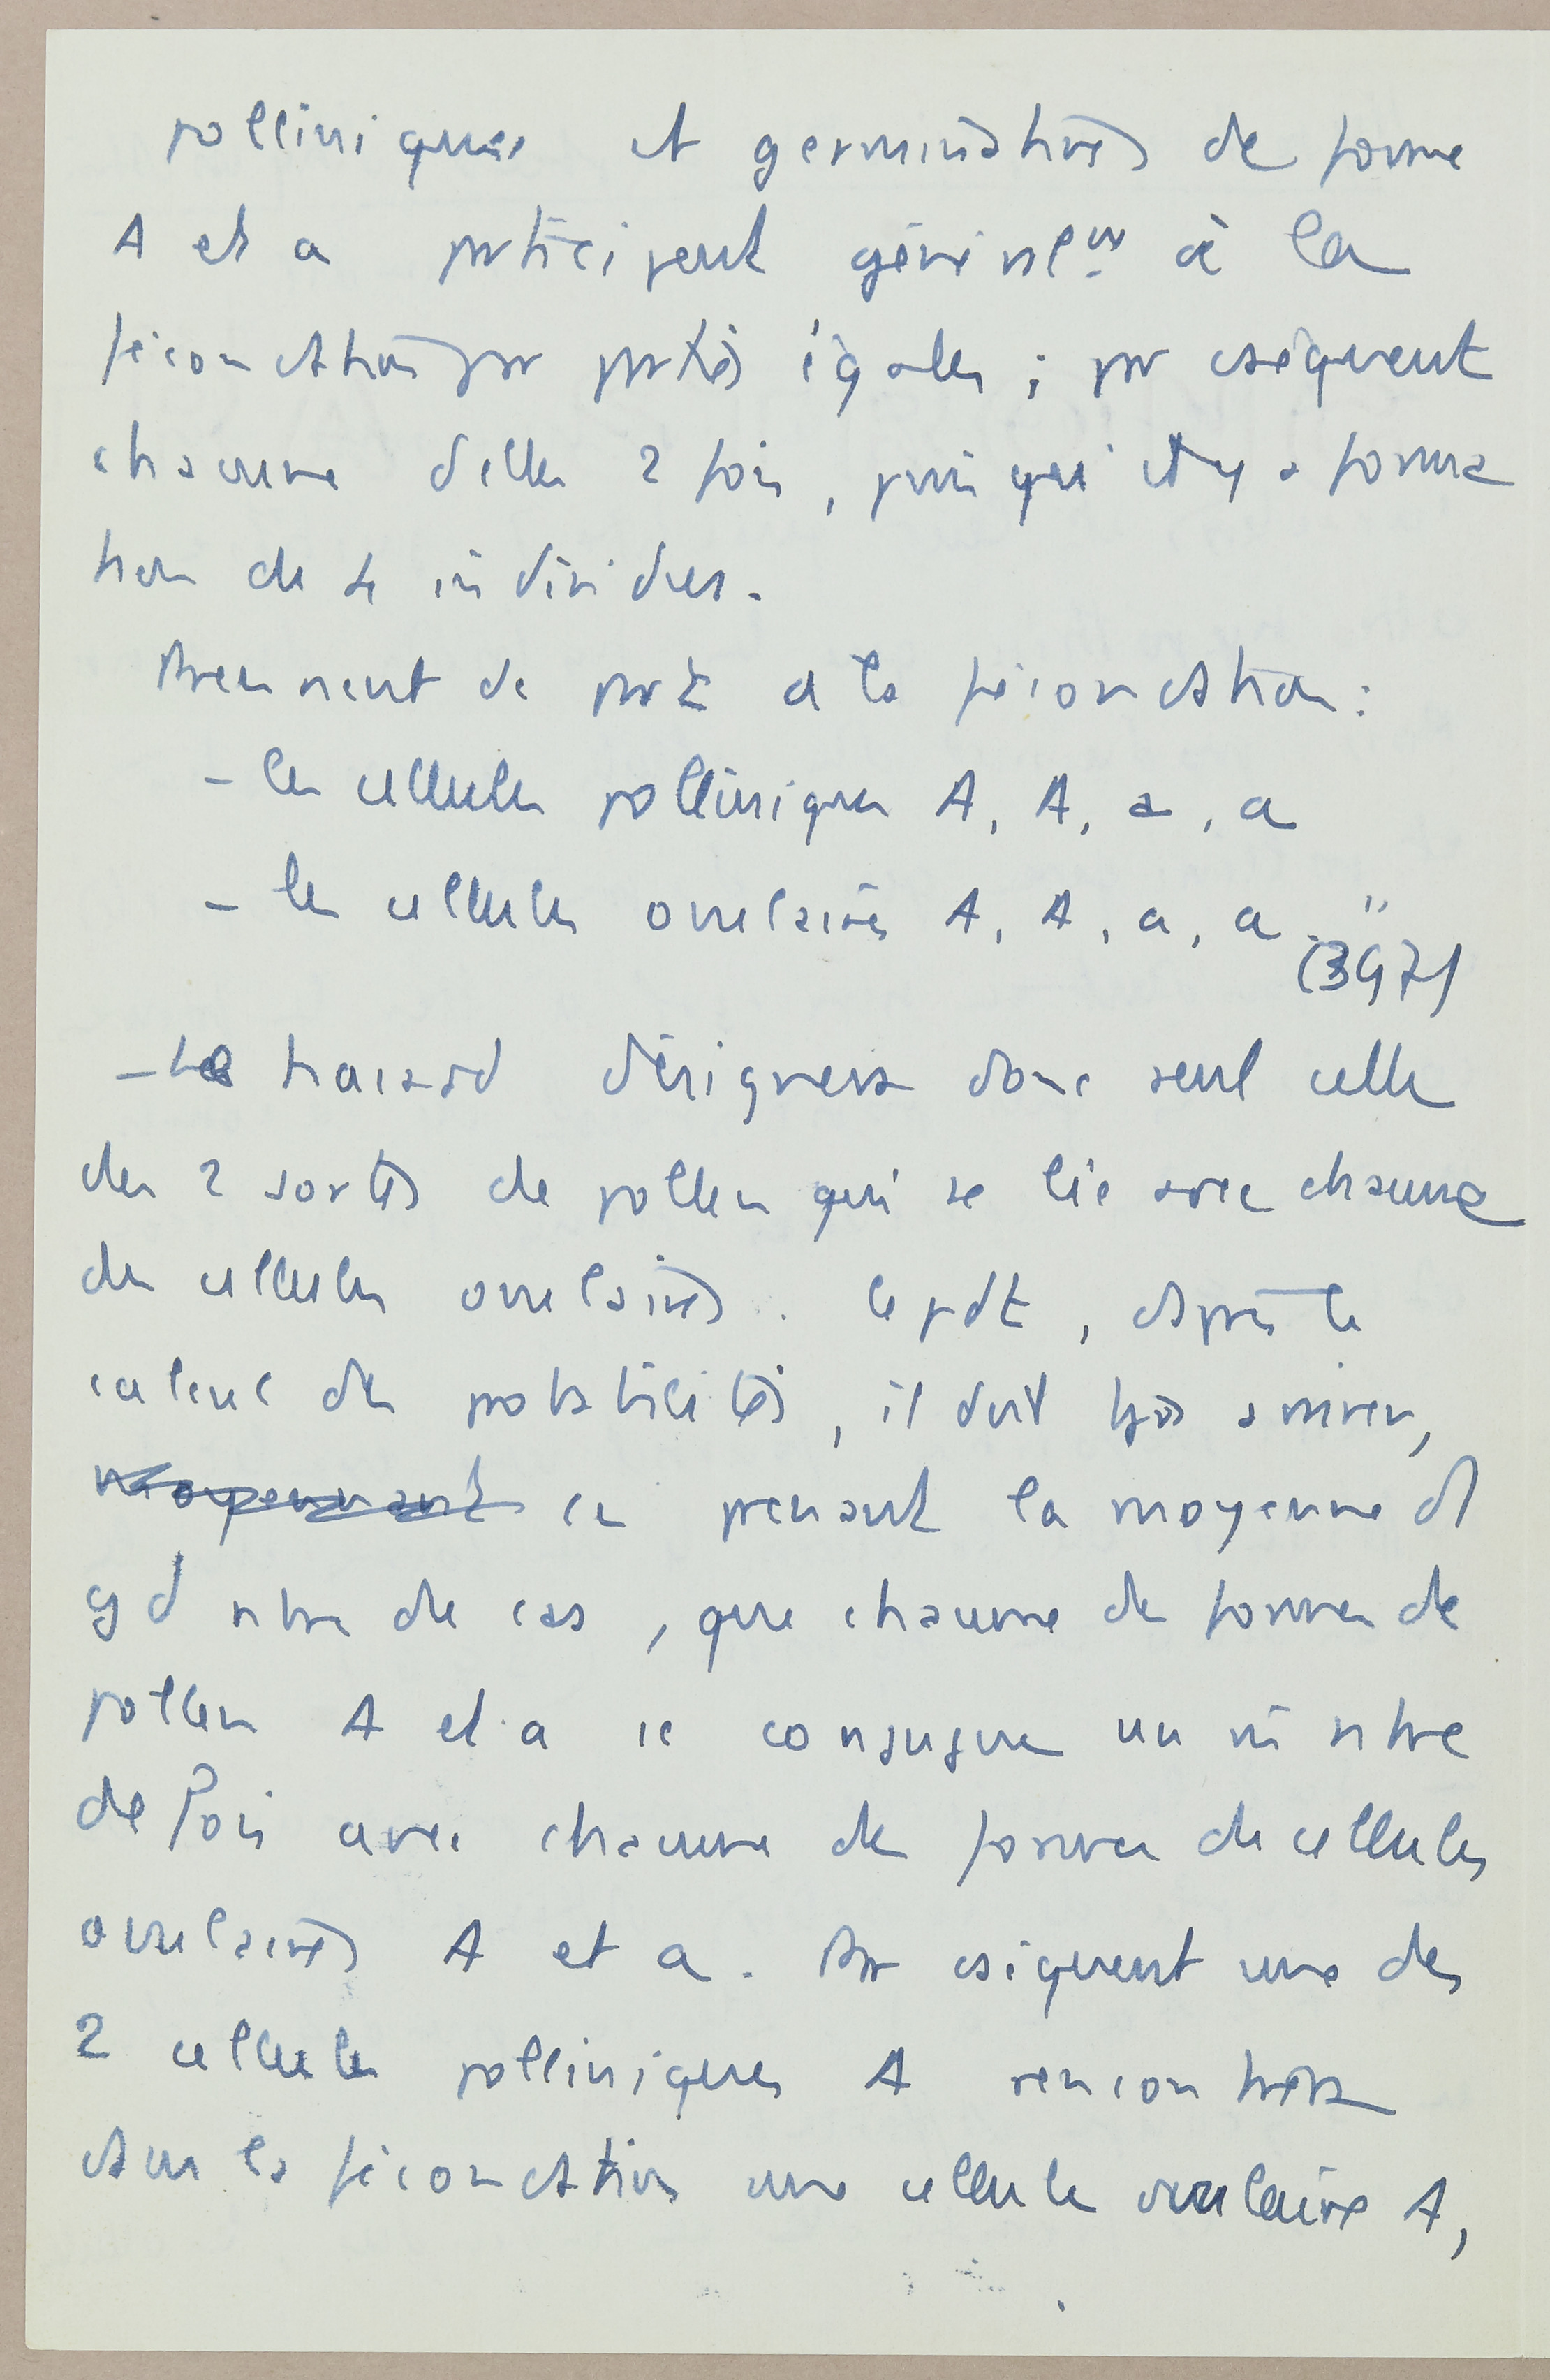 polliniques et germinatives de forme
A et a prticipent généralem à la
fécondation pr prties égales ; pr cséquent
chacune d'elles 2 fois, puisqu'il y a forma
tion de 4 individus.
Prennent de prt à la fécondation :
- les cellules polliniques A, A, a, a
- les cellules ovulaires A, A, a, a."
(397)
- Le hasard désignera donc seul celle
des 2 sortes de pollen qui se lie avec chacune
des cellules ovulaires. Cepdt, d'après le
calcul des probabilités, il doit tjs arriver,
moyennant en prenant la moyenne d'1
gd nbre de cas, que chacune des formes de
pollen A et a se conjugue un m̂ nbre
de fois avec chacune des formes de cellules
ovulaires A et a. Pr cséquent une des
2 cellules polliniques A rencontrera
dans la fécondation une cellule ovulaire A,